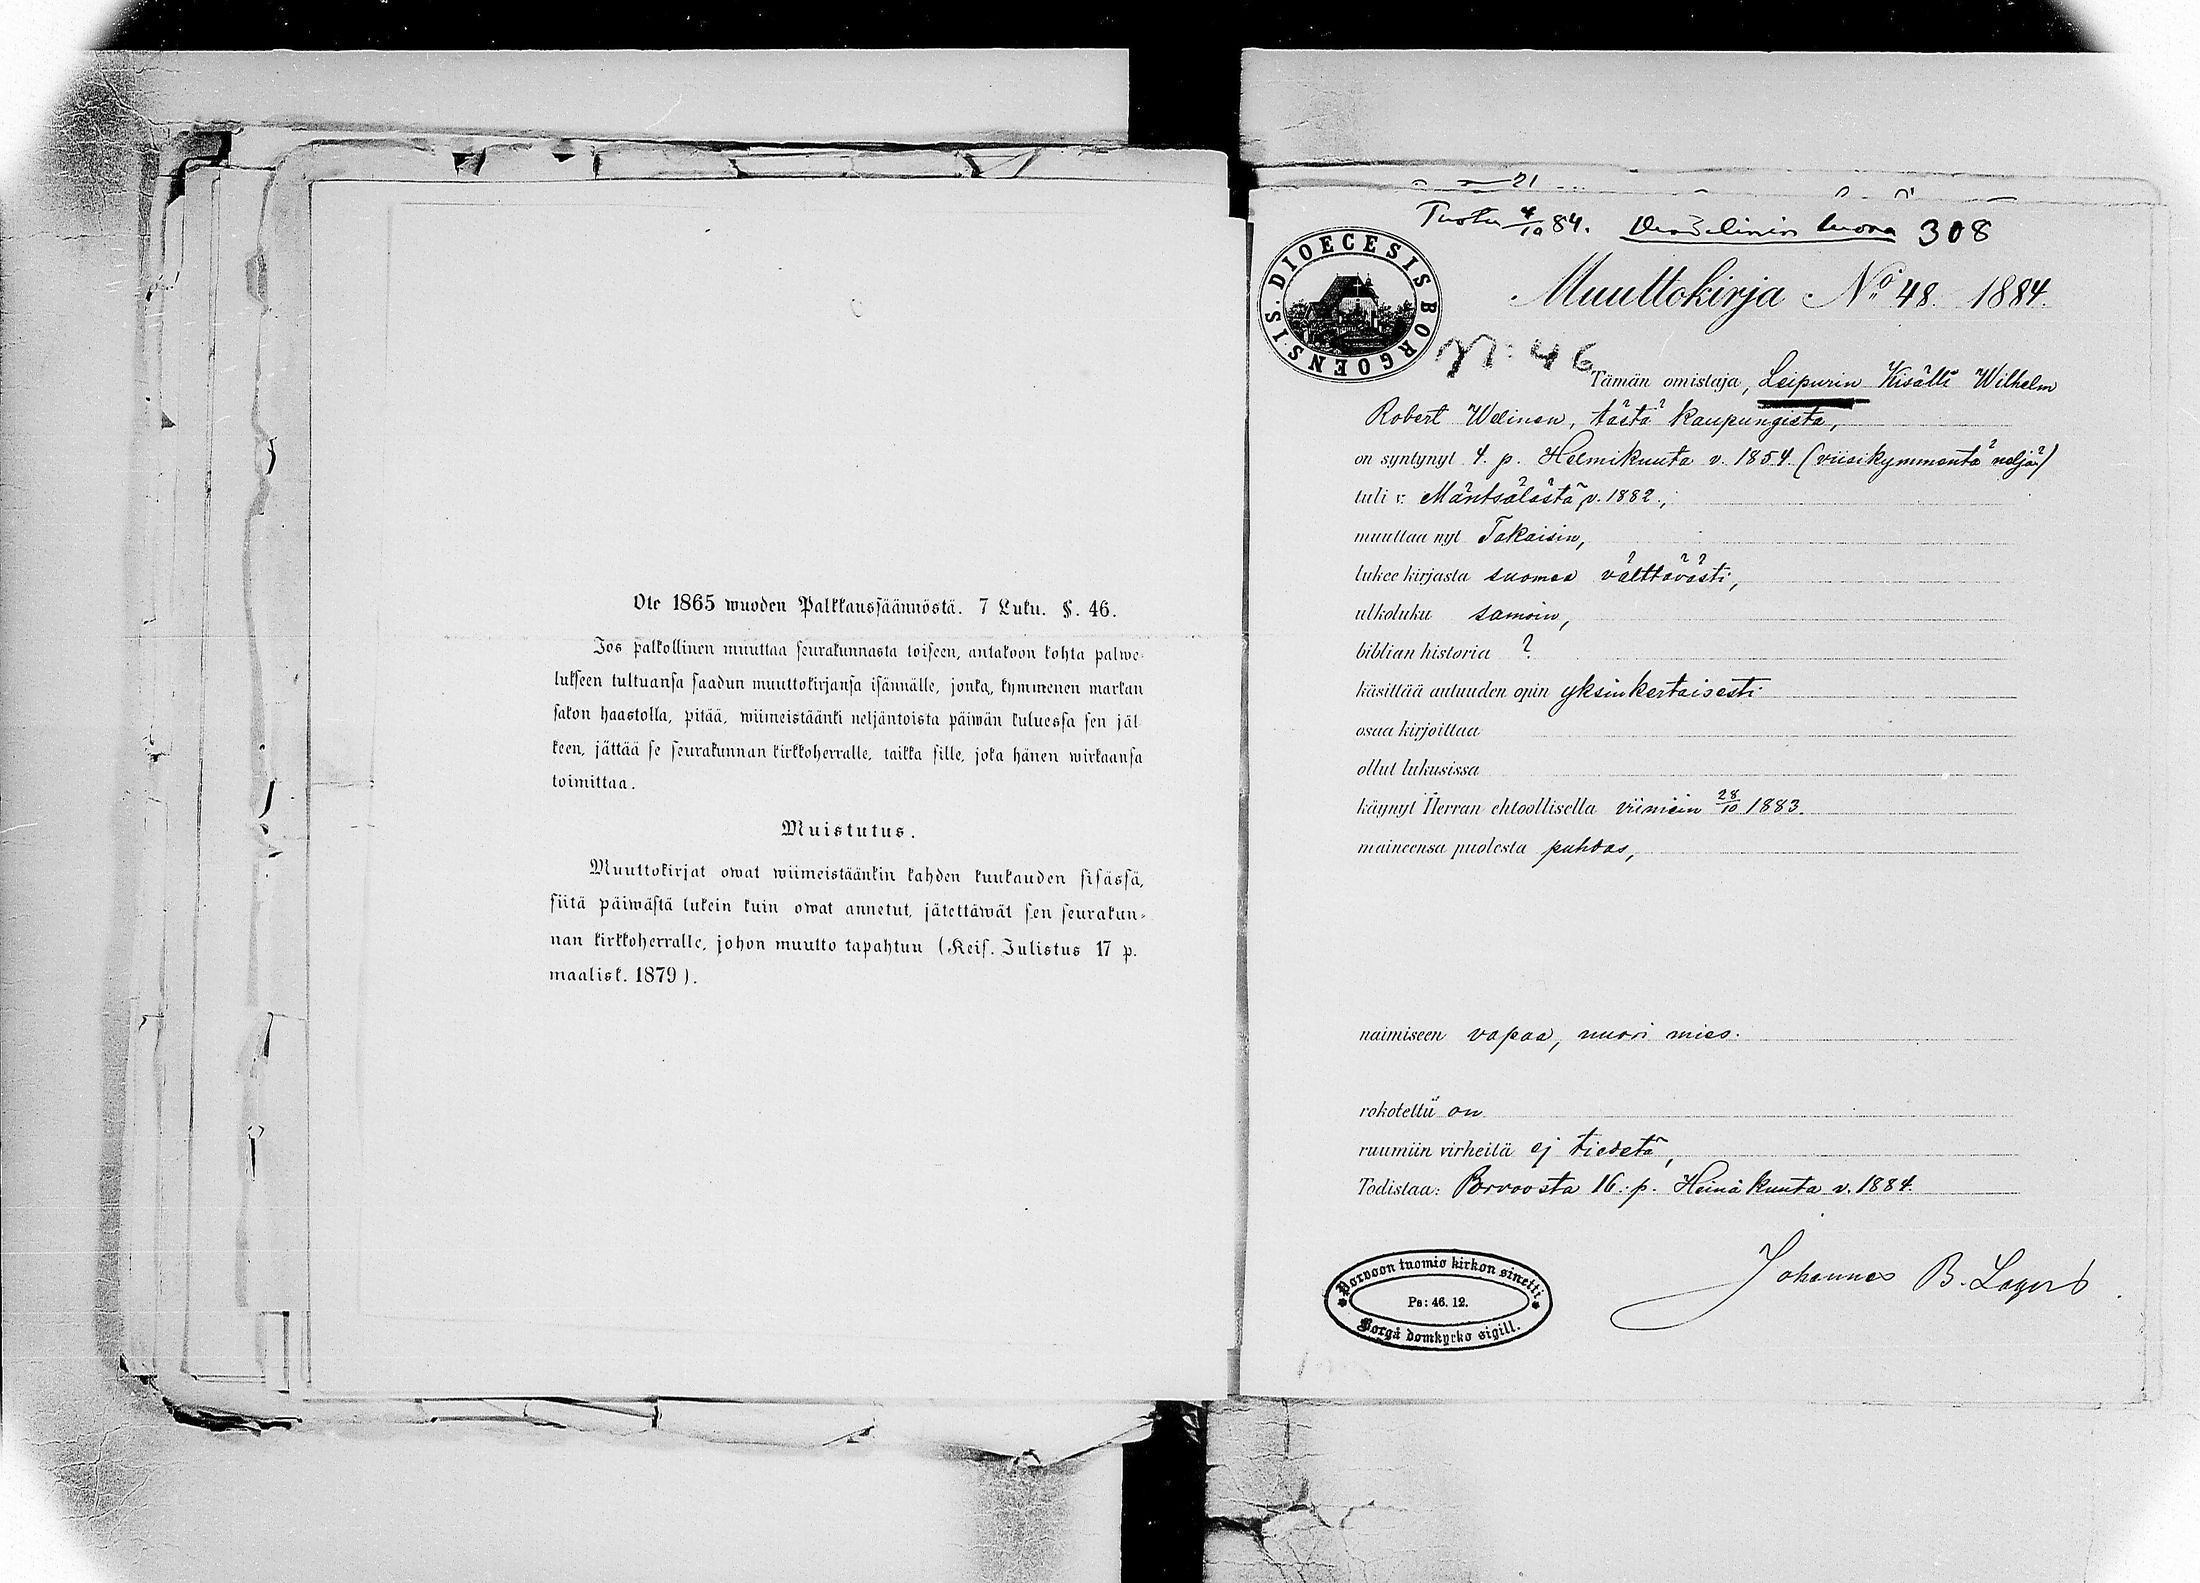 Ote 1865 wuoden Palkkaussäännöstä. 7 Luku. §. 46.
Jos palkollinen muuttaa seurakunnasta toiseen, antakoon kohta palwe-
lukseen tultuansa saadun muuttokirjansa isännälle, jonka, kymmenen markan
sakon haastolla, pitää, wiimeistäänki neljäntoista päiwän kuluessa sen jäl
keen, jättää se seurakunnan kirkkoherralle, taikka sille, joka hänen wirkaansa
toimittaa.
Muistutus.
Muuttokirjat owat wiimeistäänkin kahden kuukauden sisässä,
siitä päiwästä lukein kuin owat annetut, jätettäwät sen seurakun-
nan kirkkoherralle, johon muutto tapahtuu (Keis. Julistus 17 p.
maalisk. 1879).
21
Tuotu 4/10 84. luona 308
DIOECESIS BORGOENSIS.
Muuttokirja No 48. 1884.
N: 46
Tämän omistaja, Leipurin Kisälli Wilhelm
Robert Welinen, tästä kaupungista,
on syntynyt 4. p. Helmikuuta v. 1854. (viisikymmentä neljä)
tuli v. Mäntsälästä v. 1882,
muuttaa nyt Takaisin,
lukee kirjasta suomea välttävästi,
ulkoluku samoin,
biblian historia ?
käsittää autuuden opin yksinkertaisesti
osaa kirjoittaa
ollut lukusissa
käynyt Herran ehtoollisella viimein 28/10 1883.
maineensa puolesta puhdas,
naimiseen vapaa, nuori mies.
rokotettu on
ruumiin virheitä ej tiedetä,
Todistaa: Porvoosta 16. p. Heinäkuuta v. 1884.
Johannes B. Lagus
Porvoon tuomio kirkon sinetti
Ps: 46. 12.
Borgå domkyrko sigill.